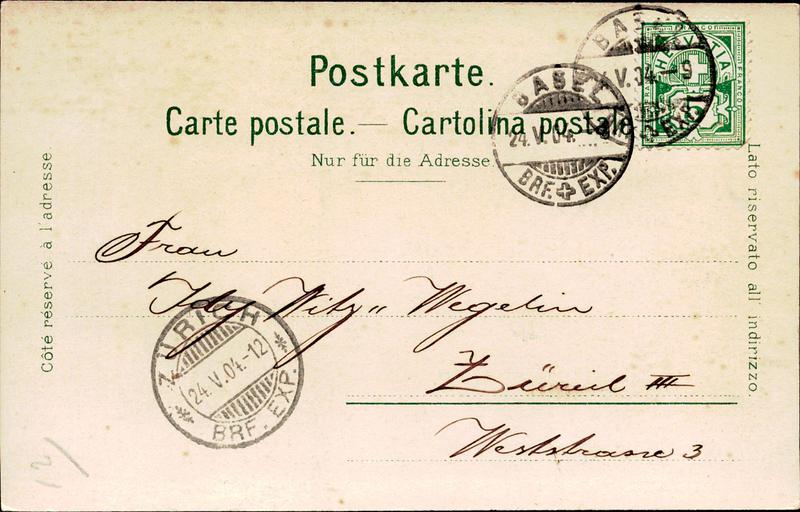 Postkarte.
Carte postale. — Cartolina postale
Nur für die Adresse.
Côté réservé à l'adresse.
Lato riservato all' indirizzo.
BASEL
24.V.04.
BRF. EXP.
BASEL
V.04.-9
EXP.
HELVETIA
FRANCO
5
Frau
Witz,, Wegelin
Zürich III
Weststrasse 3
ZÜRICH
24.V.04.-12
BRF. EXP.
12